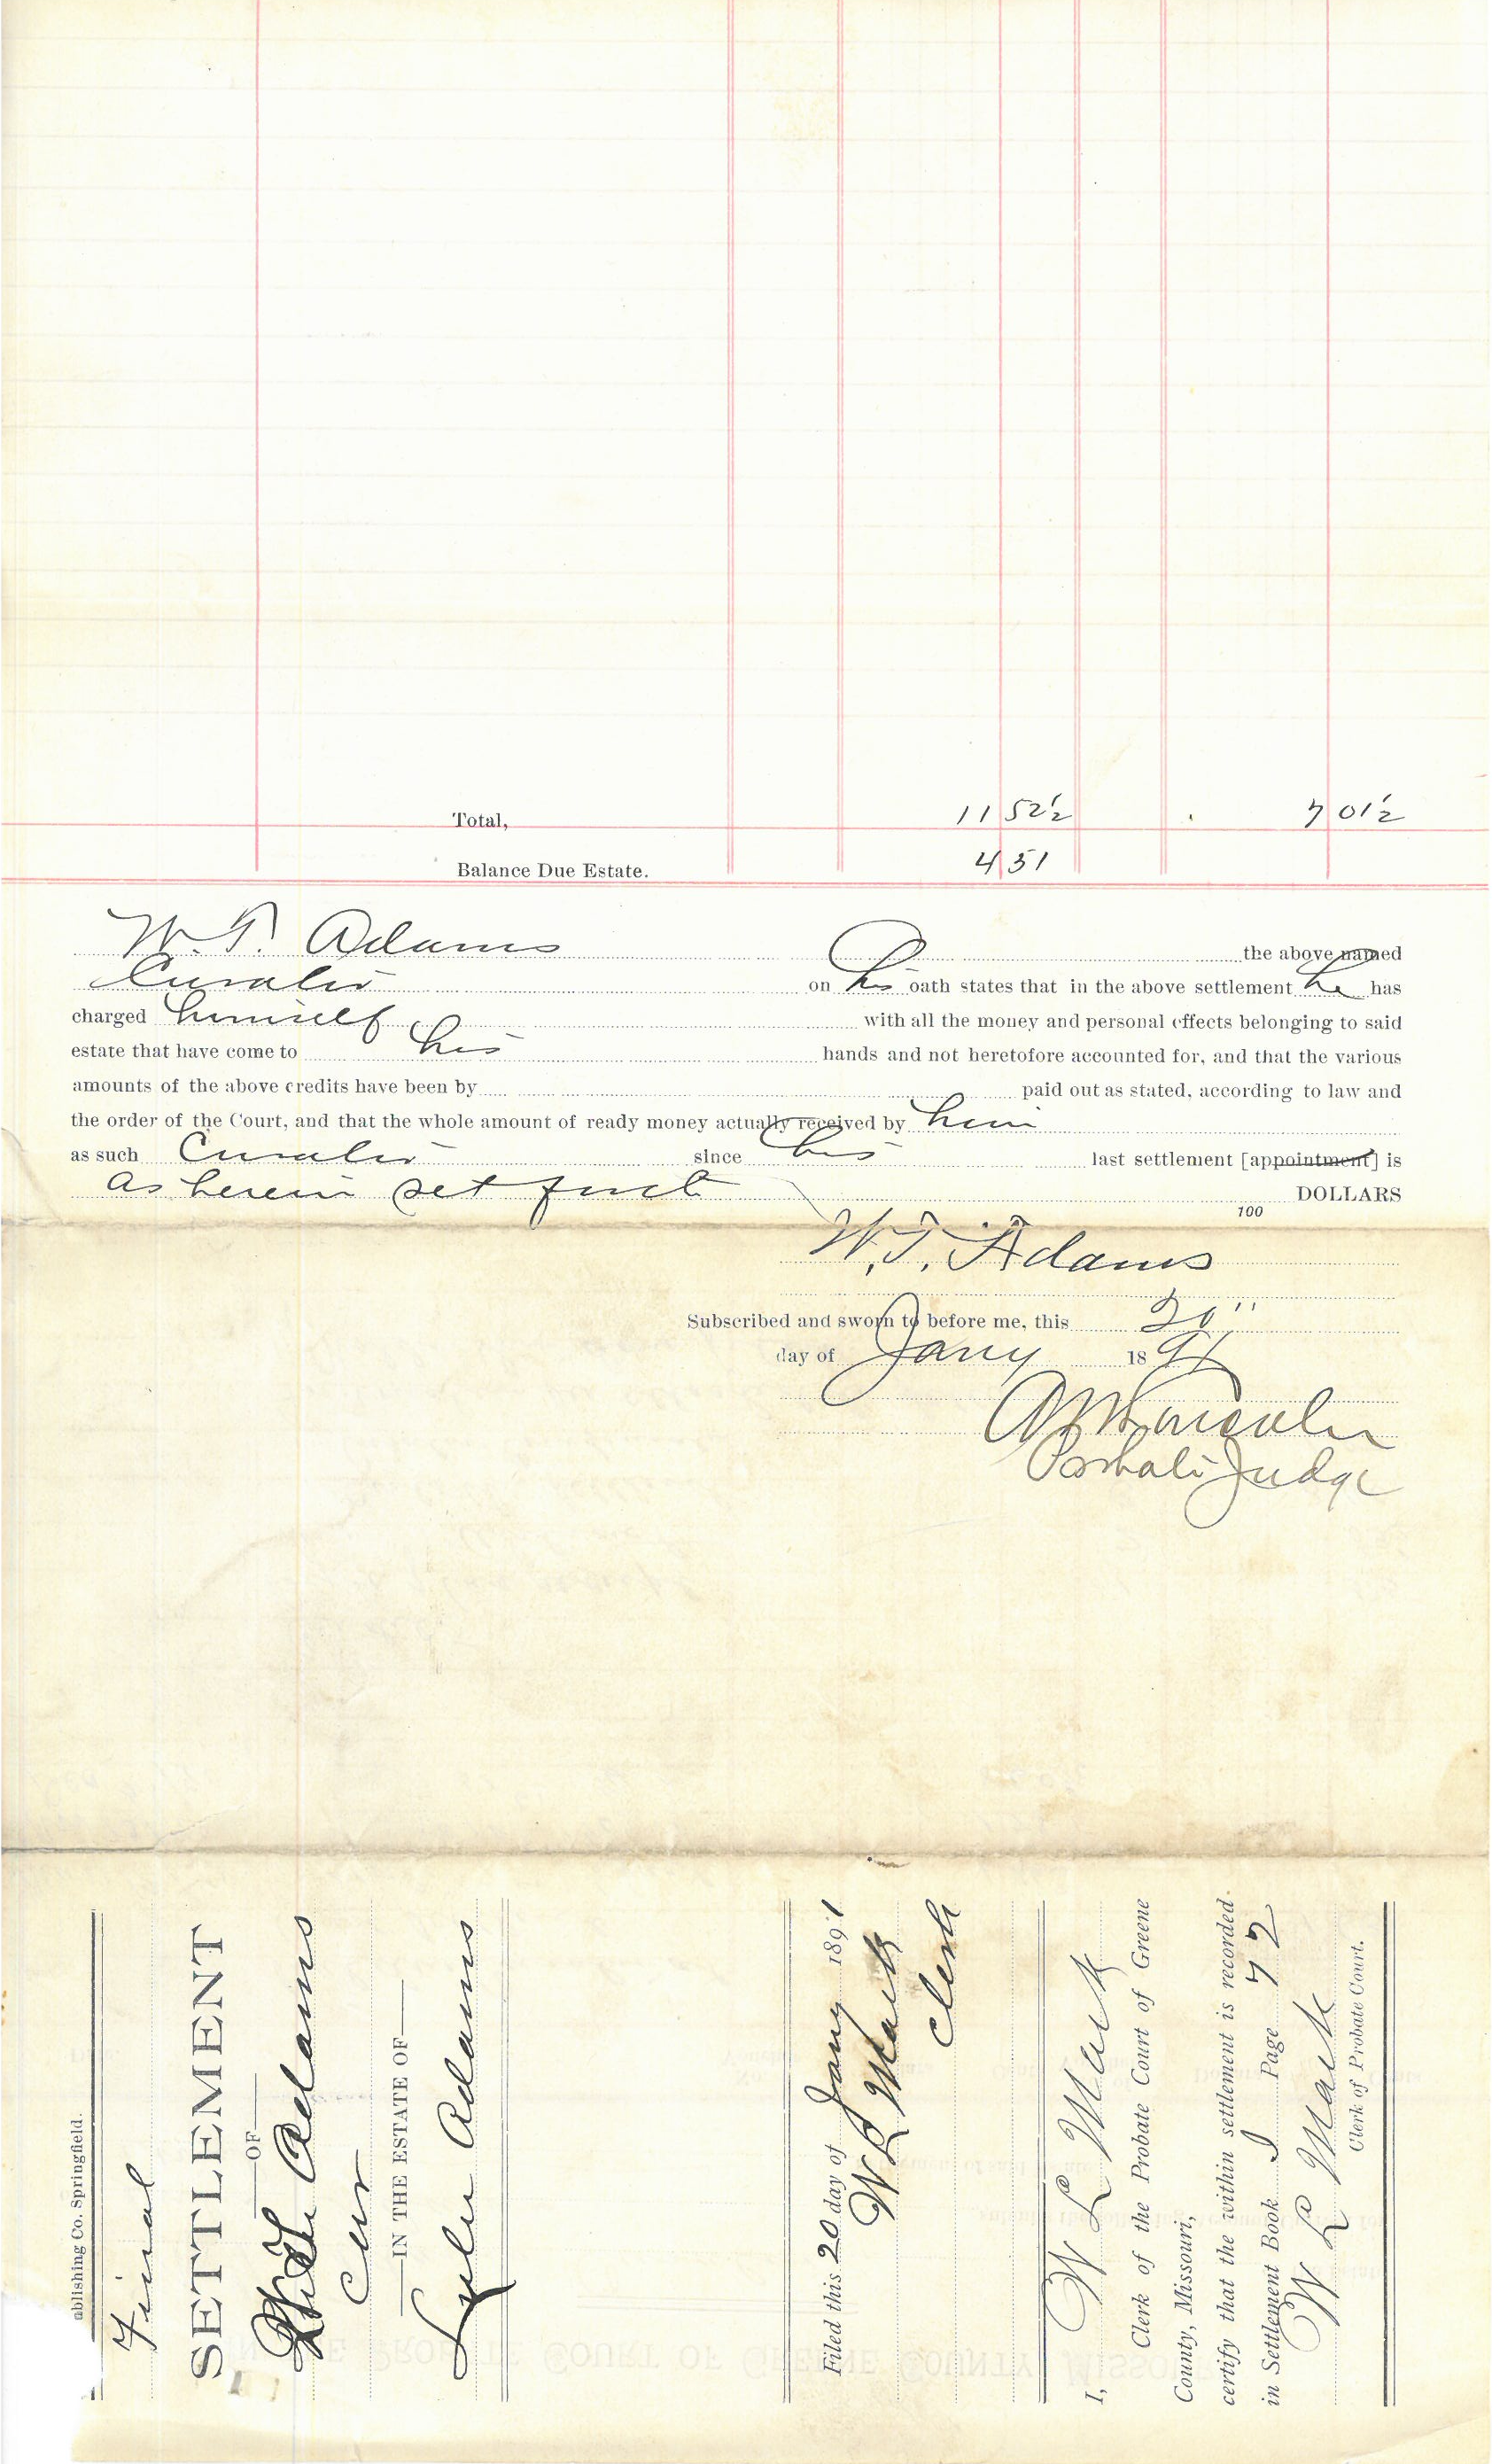 Total, 11 52½ 7 01½
Balance Due Estate. 4 51
W. T. Adams the above named
Curator on his oath states that in the above settlement he has
charged himself with all the money and personal effects belonging to said
estate that have come to his hands and not heretofore accounted for, and that the various
amounts of the above credits have been by paid out as stated, according to law and
the order of the Court, and that the whole amount of ready money actually received by him
as such Curator since his last settlement [appointment] is
as herein set forth DOLLARS
100
W. T. Adams
Subscribed and sworn to before me, this 20"
day of Jany 1891
Probate Judge
ablishing Co. Springfield.
Final
SETTLEMENT
OF
Adams
Cur
IN THE ESTATE OF
Lulu Adams
Filed this 20 day of Jany 1891
W L Mack
Clerk
I, W L Mack
Clerk of the Probate Court of Greene
County, Missouri,
certify that the within settlement is recorded
in Settlement Book I Page 72
W L Mack
Clerk of Probate Court.